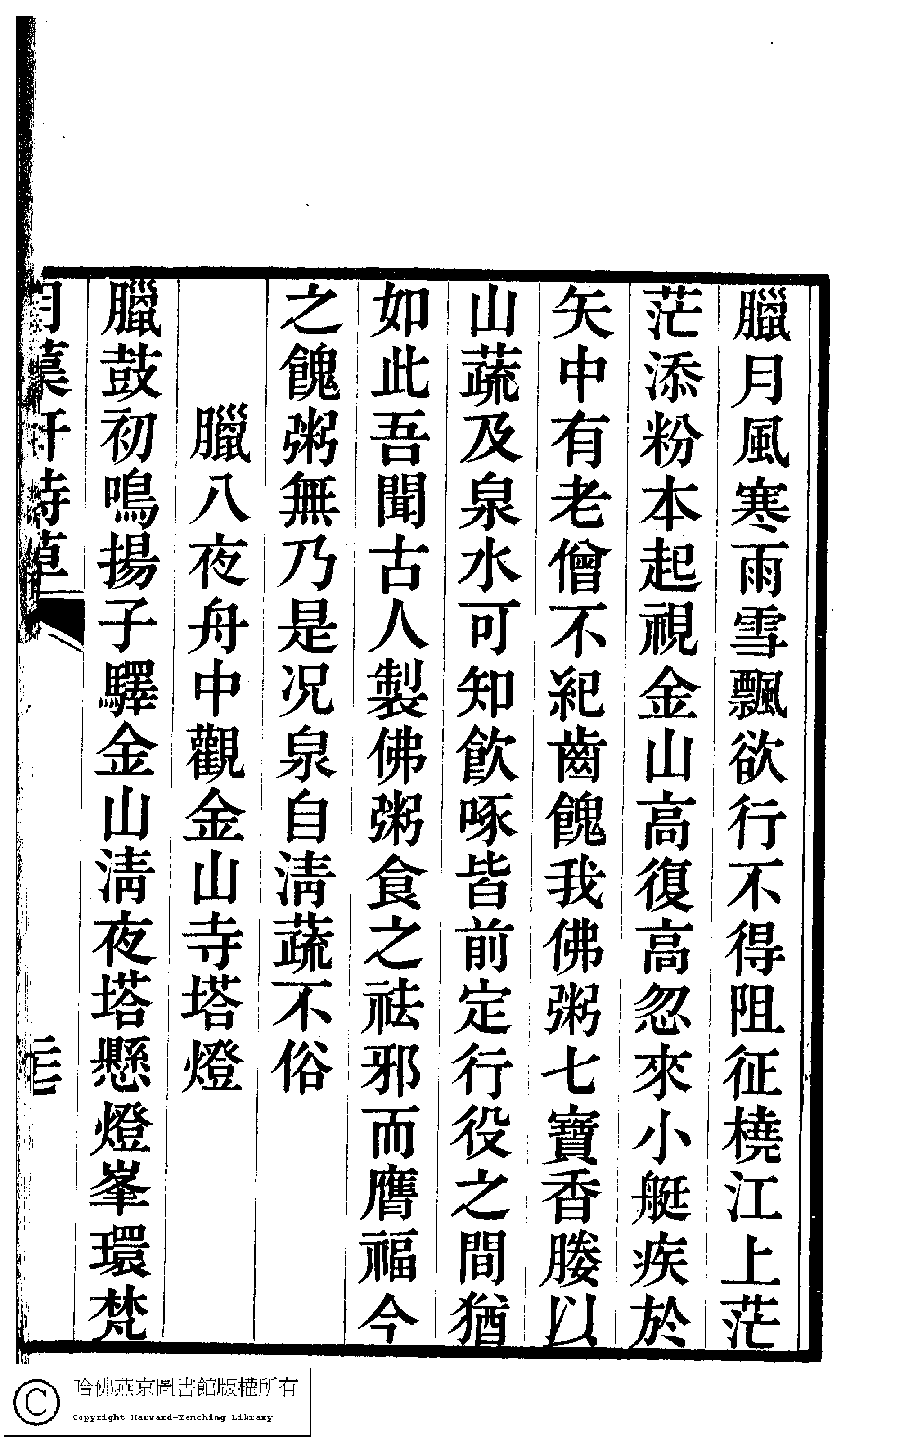 臘月風寒雨雪飄欲行不得阻征橈江上茫
茫添粉本起視金山高復高忽來小艇疾於
矢中有老僧不紀齒餽我佛粥七寶香媵以
山蔬及泉水可知飲啄皆前定行役之間猶
如此吾聞古人製佛粥食之祛邪而膺福今
之餽粥無乃是况泉自淸蔬不俗
臘八夜舟中觀金山寺塔燈
臘鼓初鳴揚子驛金山淸夜塔懸燈峯環梵
哈佛燕京圖書館版權所有
Copyright Harvard-Yenching Library